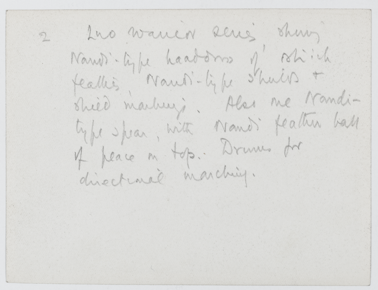 2 Luo warrior series, showing
Nandi-type headdress of ostrich
feathers, Nandi-type shields +
shield markings. Also one Nandi-
type spear, with Nandi feather ball
of peace on top. Drums for
directional marching.